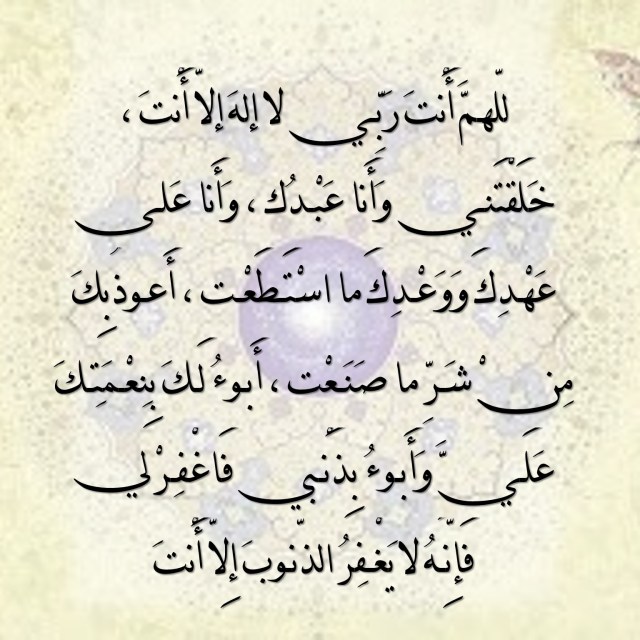 للّهمَّ أَنتَ رَبِّـي لا إلهَ إلاّ أَنتَ ،
خَلَقْتَنـي وَأَنا عَبْـدُك ، وَأَنا عَلـى
عَهْـدِكَ وَوَعْـدِكَ ما اسْتَـطَعْـت ، أَعـوذُ بِكَ
مِن شَـرِّ ما صَنَـعْت ، أَبـوءُ لَـكَ بِنِعْـمَتِـكَ
عَلَـيَّ وَأَبـوءُ بِذَنْـبي فَاغْفِـرْ لي
فَإِنَّـهُ لا يَغْـفِرُ الذُّنـوبَ إِلاّ أَنتَ